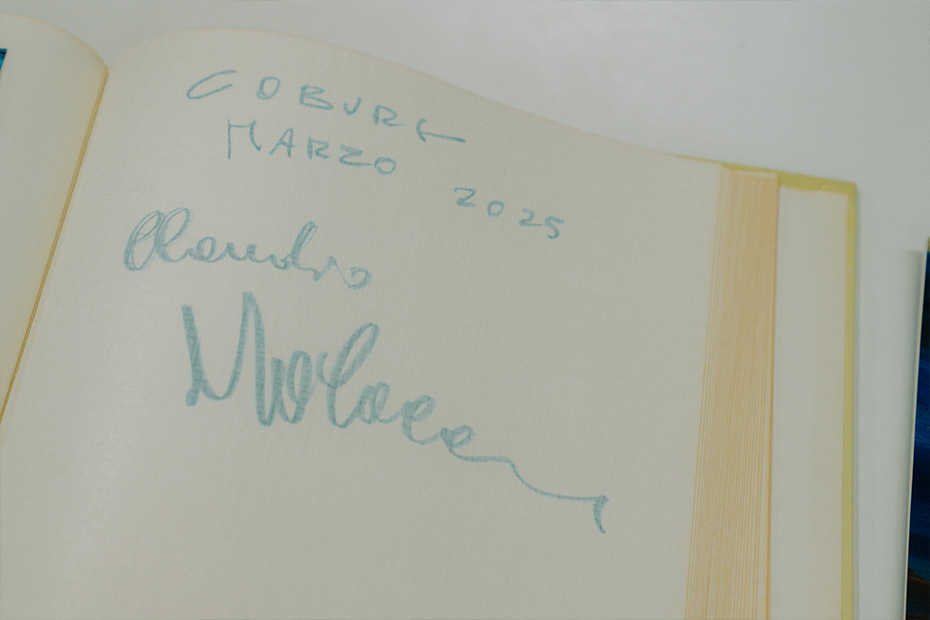 COBURG
MARZO
2025
Claudio